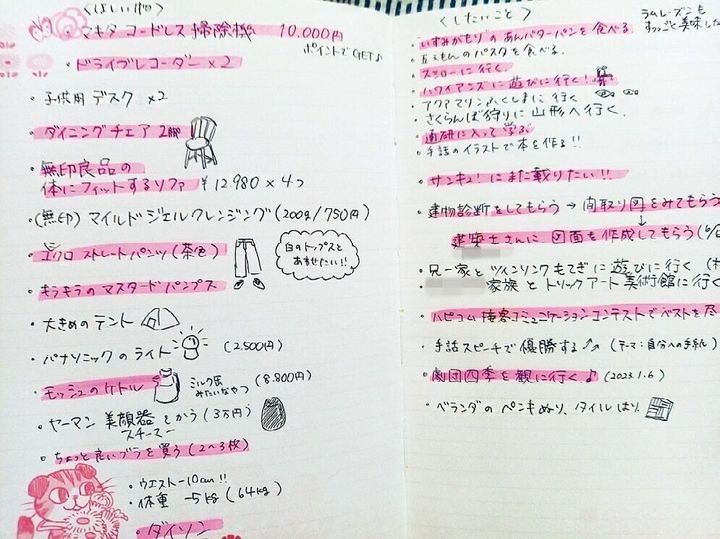 〈ほしい物〉
・マキタ コードレス 掃除機 10.000円
ポイントでGET♪
・ドライブレコーダー×2
・子供用 デスク ×2
・ダイニングチェア 2脚
・無印良品の
体にフィットするソファ ¥12.980×4つ
・(無印) マイルドジェルクレンジング (200g/750円)
・ユニクロ ストレートパンツ (茶色)
白のトップスと
あわせたい!!
・キラキラのマスタードパンプス
・大きめのテント
・パナソニックのライト (2.500円)
・モッシュのケトル ミルク缶
みたいなやつ (8.800円)
・ヤーマン 美顔器 をかう (3万円)
スチーマー
・ちょっと良いブラを買う (2〜3枚)
・ウエスト-10cm!!
・体重 -5kg (64kg)
・ダイソン
〈したいこと〉
ラムレーズンも
すっごく美味した
・いすみがもりの あんバターパンを食べる
・五右衛もんのパスタを食べる。
・スシローに行く。
・ハワイアンズに遊びに行く!
・アクアマリンふくしまに行く
・さくらんぼ狩りに山形へ行く。
・通研に入って学ぶ
・手話のイラストで本を作る!!
・サンキュ!にまた載りたい!!
・建物診断をしてもらう → 間取り図をみてもらう
↓
建築士さんに 図面を作成してもらう
・兄一家とツインリンクもてぎに遊びに行く
家族とトリックアート美術館に行く
・ハピコム接客コミュニケーションコンテストでベストを尽
・手話スピーチで優勝する (テーマ:自分への手紙)
・劇団四季を観に行く♪ (2023.1.6)
・ベランダの ペンキぬり、タイルはり